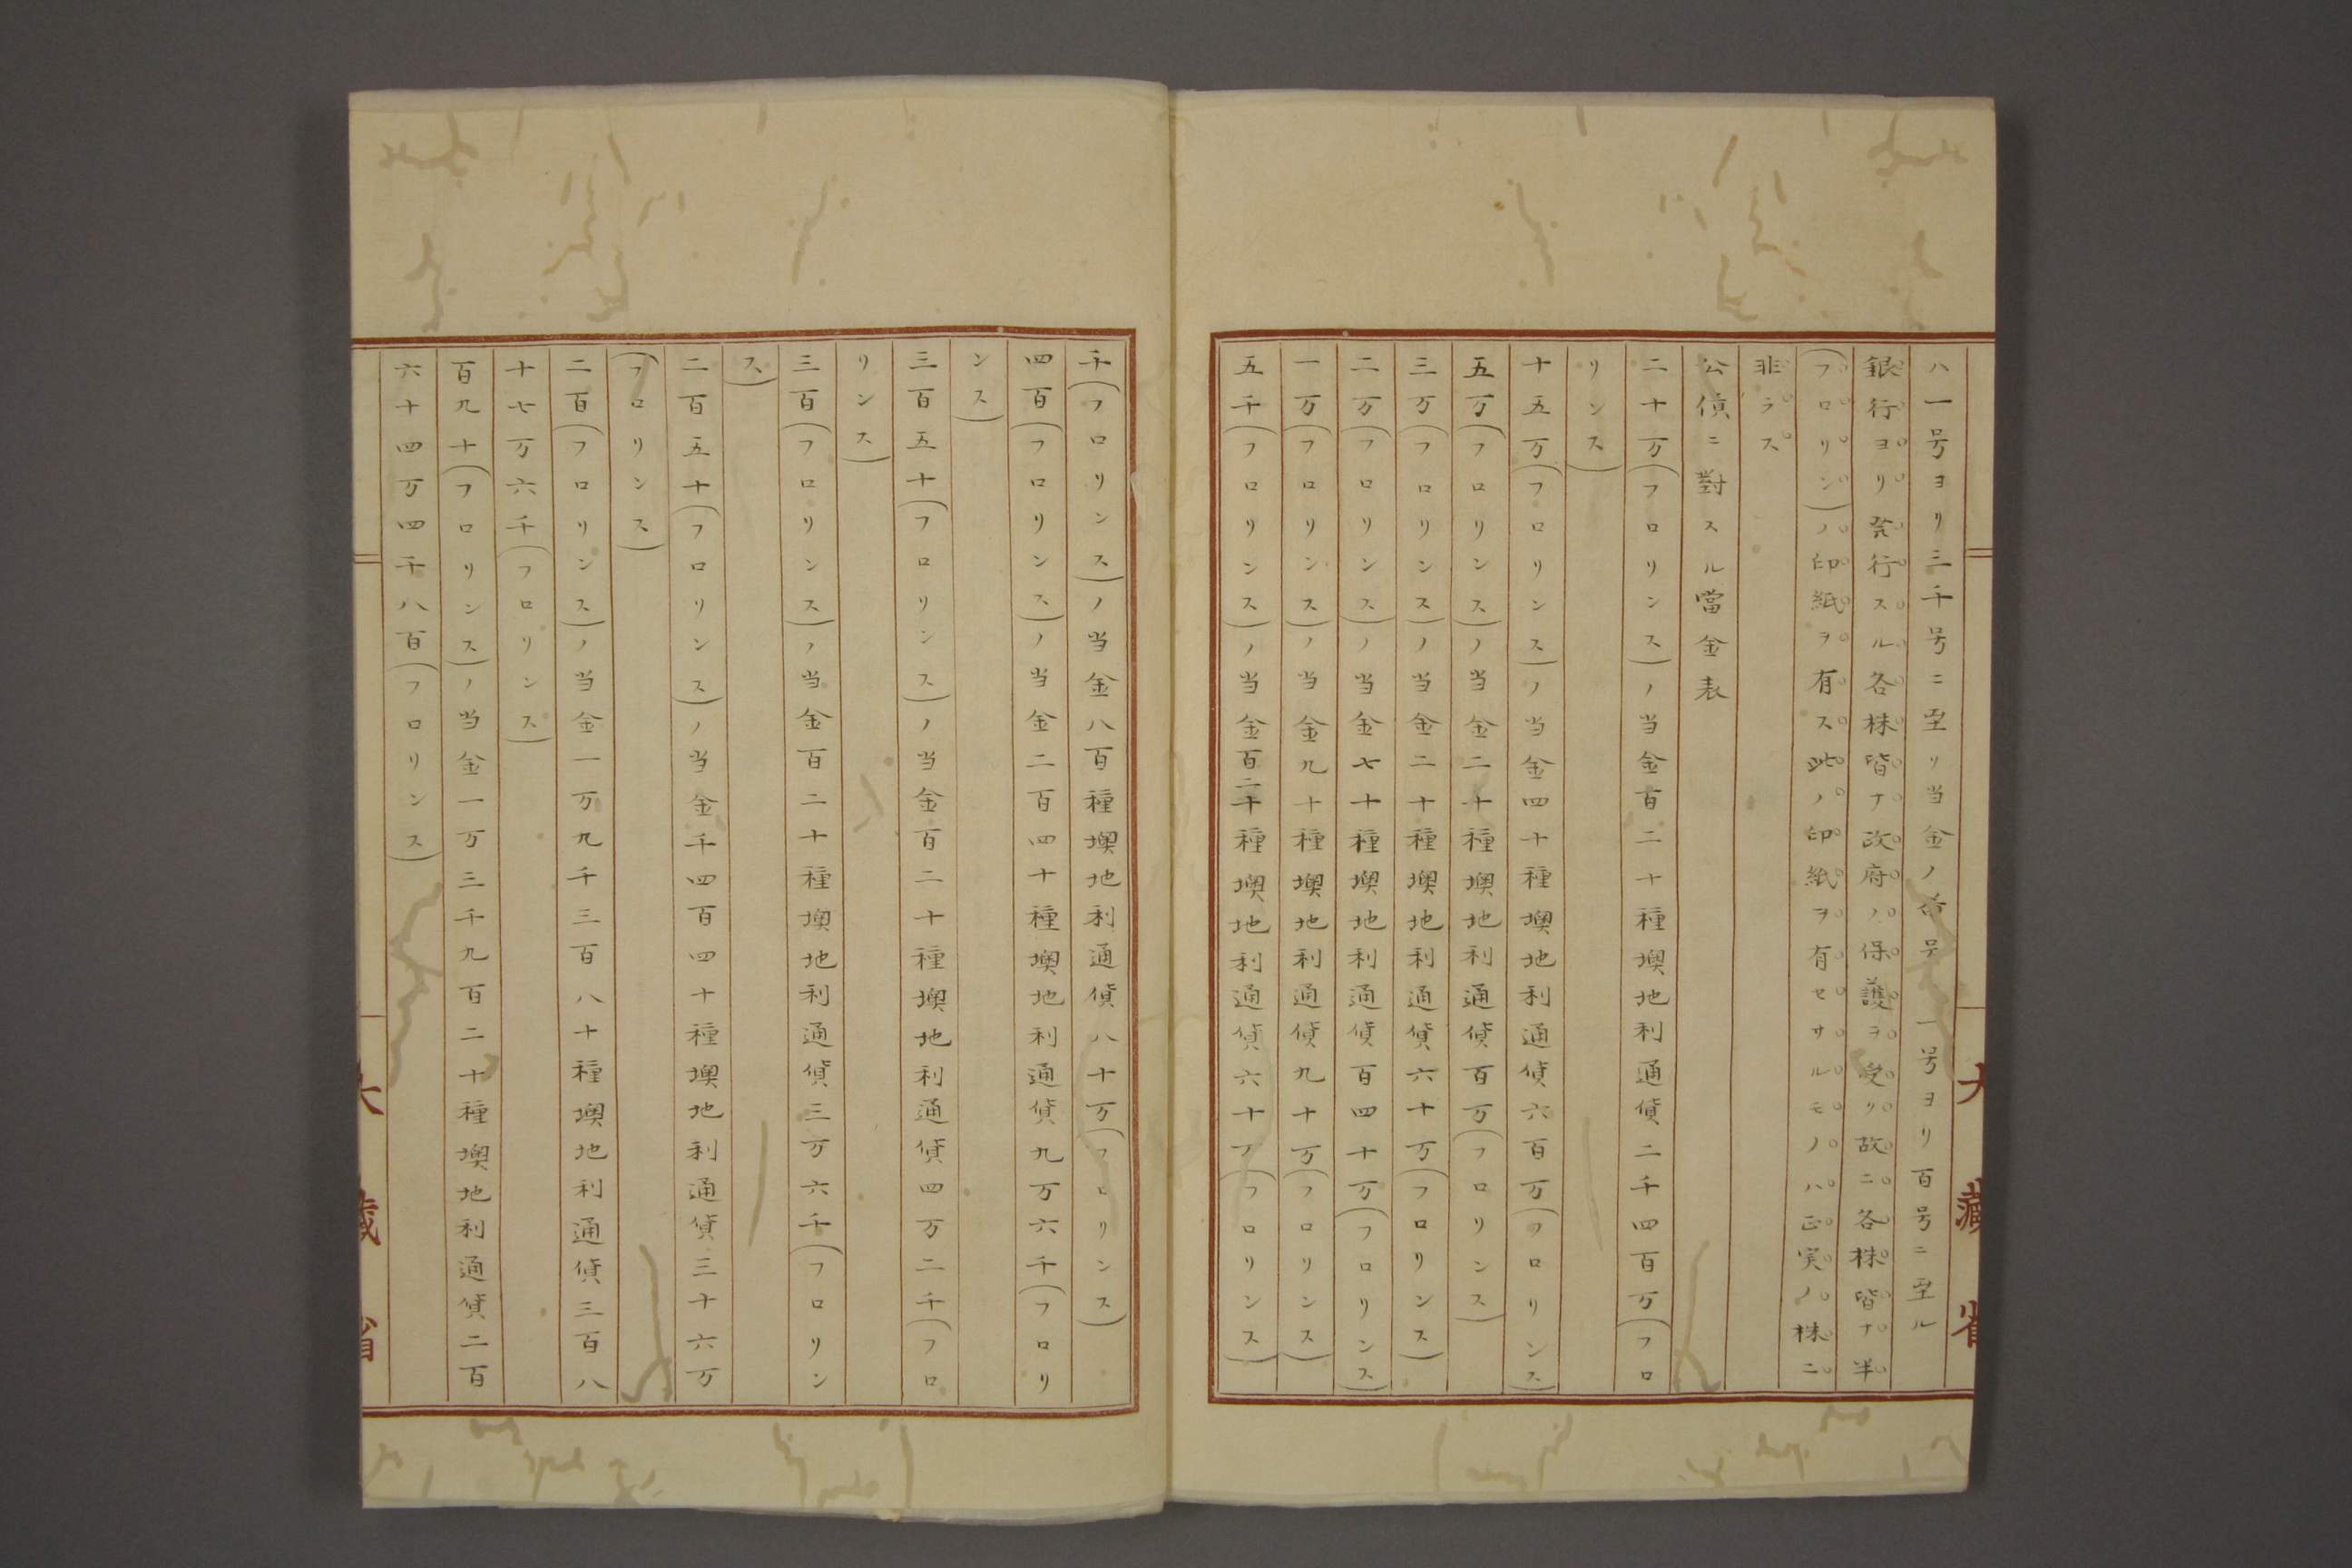 ハ一号ヨリ三千号ニ至リ当金ノ番号一号ヨリ百号ニ至ル
銀行ヨリ発行スル各株皆ナ政府ノ保護ヲ受リ故ニ各株皆ナ半
(フロリン)ノ印紙ヲ有ス此ノ印紙ヲ有セサルモノハ正実ノ株ニ
非ラス
公債ニ對スル當金表
二十万(フロリンス)ノ当金百二十種墺地利通貨二千四百万(フロ
リンス)
十五万(フロリンス)ノ当金四十種墺地利通貨六百万(フロリンス)
五万(フロリンス)ノ当金二十種墺地利通貨百万(フロリンス)
三万(フロリンス)ノ当金二十種墺地利通貨六十万(フロリンス)
二万(フロリンス)ノ当金七十種墺地利通貨百四十万(フロリンス)
一万(フロリンス)ノ当金九十種墺地利通貨九十万(フロリンス)
五千(フロリンス)ノ当金百二十種墺地利通貨六十万(フロリンス)
千(フロリンス)ノ当金八百種墺地利通貨八十万(フロリンス)
四百(フロリンス)ノ当金二百四十種墺地利通貨九万六千(フロリ
ンス)
三百五十(フロリンス)ノ当金百二十種墺地利通貨四万二千(フロ
リンス)
三百(フロリンス)ノ当金百二十種墺地利通貨三万六千(フロリン
ス)
二百五十(フロリンス)ノ当金千四百四十種墺地利通貨三十六万
(フロリンス)
二百(フロリンス)ノ当金一万九千三百八十種墺地利通貨三百八
十七万六千(フロリンス)
百九十(フロリンス)ノ当金一万三千九百二十種墺地利通貨二百
六十四万四千八百(フロリンス)
大藏省